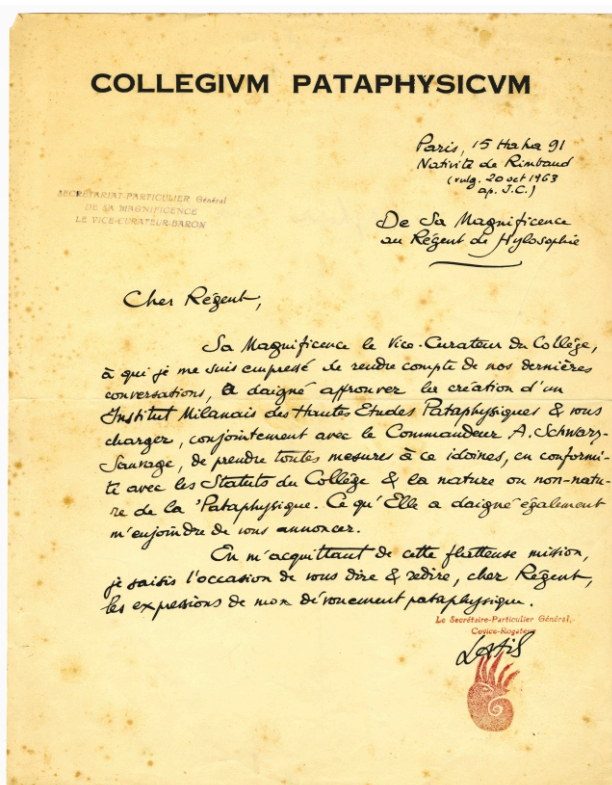 COLLEGIVM PATAPHYSICVM
Paris, 15 haha 91
Nativité de Rimbaud
(vulg. 20 oct 1963
ap. J.C.)
SECRÉTARIAT-PARTICULIER Général
DE SA MAGNIFICENCE
LE VICE-CURATEUR-BARON
De Sa Magnificence
au Régent de Hylosophie
Cher Régent,
Sa Magnificence le Vice-Curateur du Collège,
à qui je me suis empressé de rendre compte de nos dernières
conversations, a daigné approuver la création d'un
Institut Milanais des Hautes Etudes Pataphysiques & vous
charger, conjointement avec le Commandeur A. Schwarz-
Sauvage, de prendre toutes mesures à ce idoines, en conformi-
té avec les Statuts du Collège & la nature ou non-natu-
re de la 'Pataphysique. Ce qu'Elle a daigné également
m'enjoindre de vous annoncer.
En m'acquittant de cette flatteuse mission,
je saisis l'occasion de vous dire & redire, cher Régent,
les expressions de mon dévouement pataphysique.
Le Secrétaire-Particulier Général,